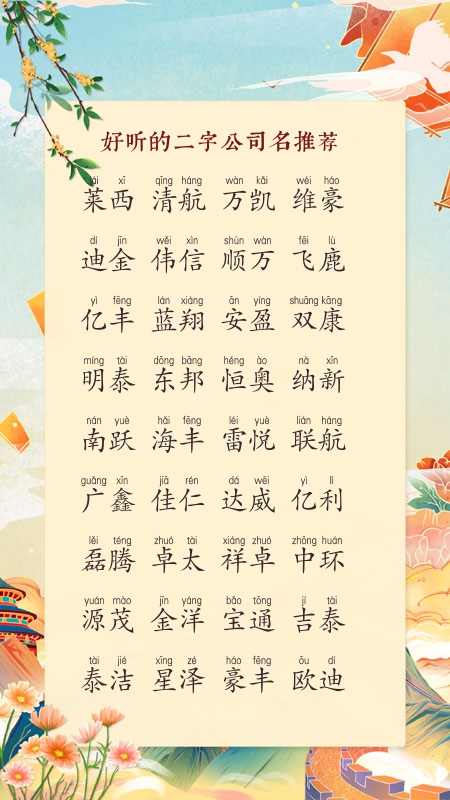 好听的二字公司名推荐
lái xī qīng háng wàn kǎi wéi háo
莱西 清航 万凯 维豪
dí jīn wěi xìn shùn wàn fēi lù
迪金 伟信 顺万 飞鹿
yì fēng lán xiáng ān yíng shuāng kāng
亿丰 蓝翔 安盈 双康
míng tài dōng bāng héng ào nà xīn
明泰 东邦 恒奥 纳新
nán yuè hǎi fēng léi yuè lián háng
南跃 海丰 雷悦 联航
guǎng xīn jiā rén dá wēi yì lì
广鑫 佳仁 达威 亿利
lěi téng zhuó tài xiáng zhuó zhōng huán
磊腾 卓太 祥卓 中环
yuán mào jīn yáng bǎo tōng jí tài
源茂 金洋 宝通 吉泰
tài jié xīng zé háo fēng ōu dí
泰洁 星泽 豪丰 欧迪